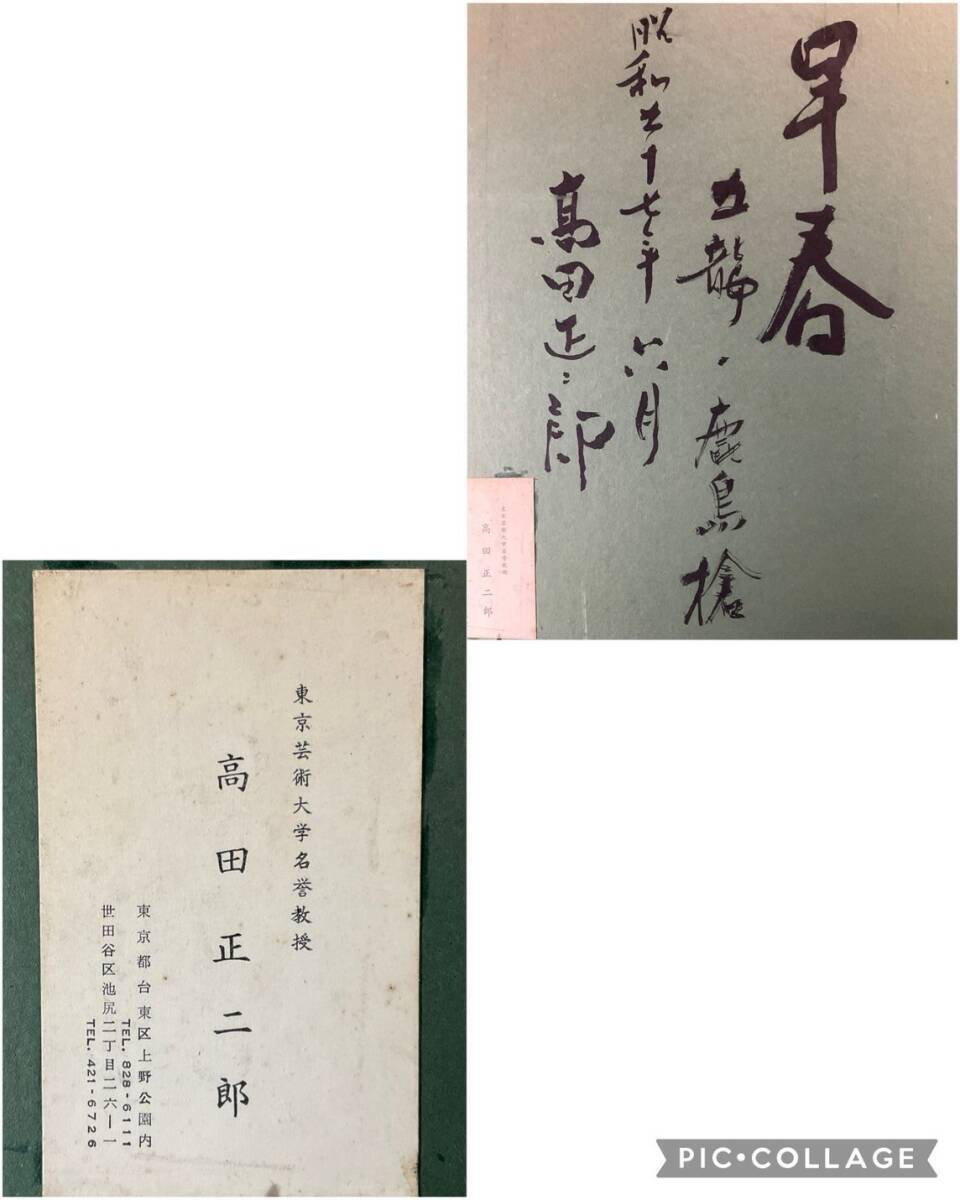 早春
五龍・鹿島槍
昭和五十七年 六月
高田正二郎
東京芸術大学名誉教授
高田正二郎
東京芸術大学名誉教授
高田正二郎
東京都台東区上野公園内
TEL. 828-6111
世田谷区池尻二丁目二六ー一
TEL. 421-6726
PIC•COLLAGE